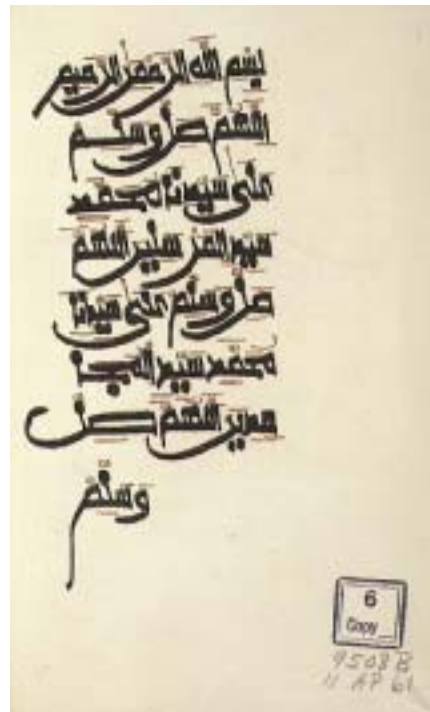 بسم الله الرحمن الرحيم
اللهم صل وسلم
على سيدنا محمد
سيد المرسلين اللهم
صل وسلم على سيدنا
محمد سيد المجا
هدين اللهم صل
وسلم
6
Copy
9508B
11 AP 61